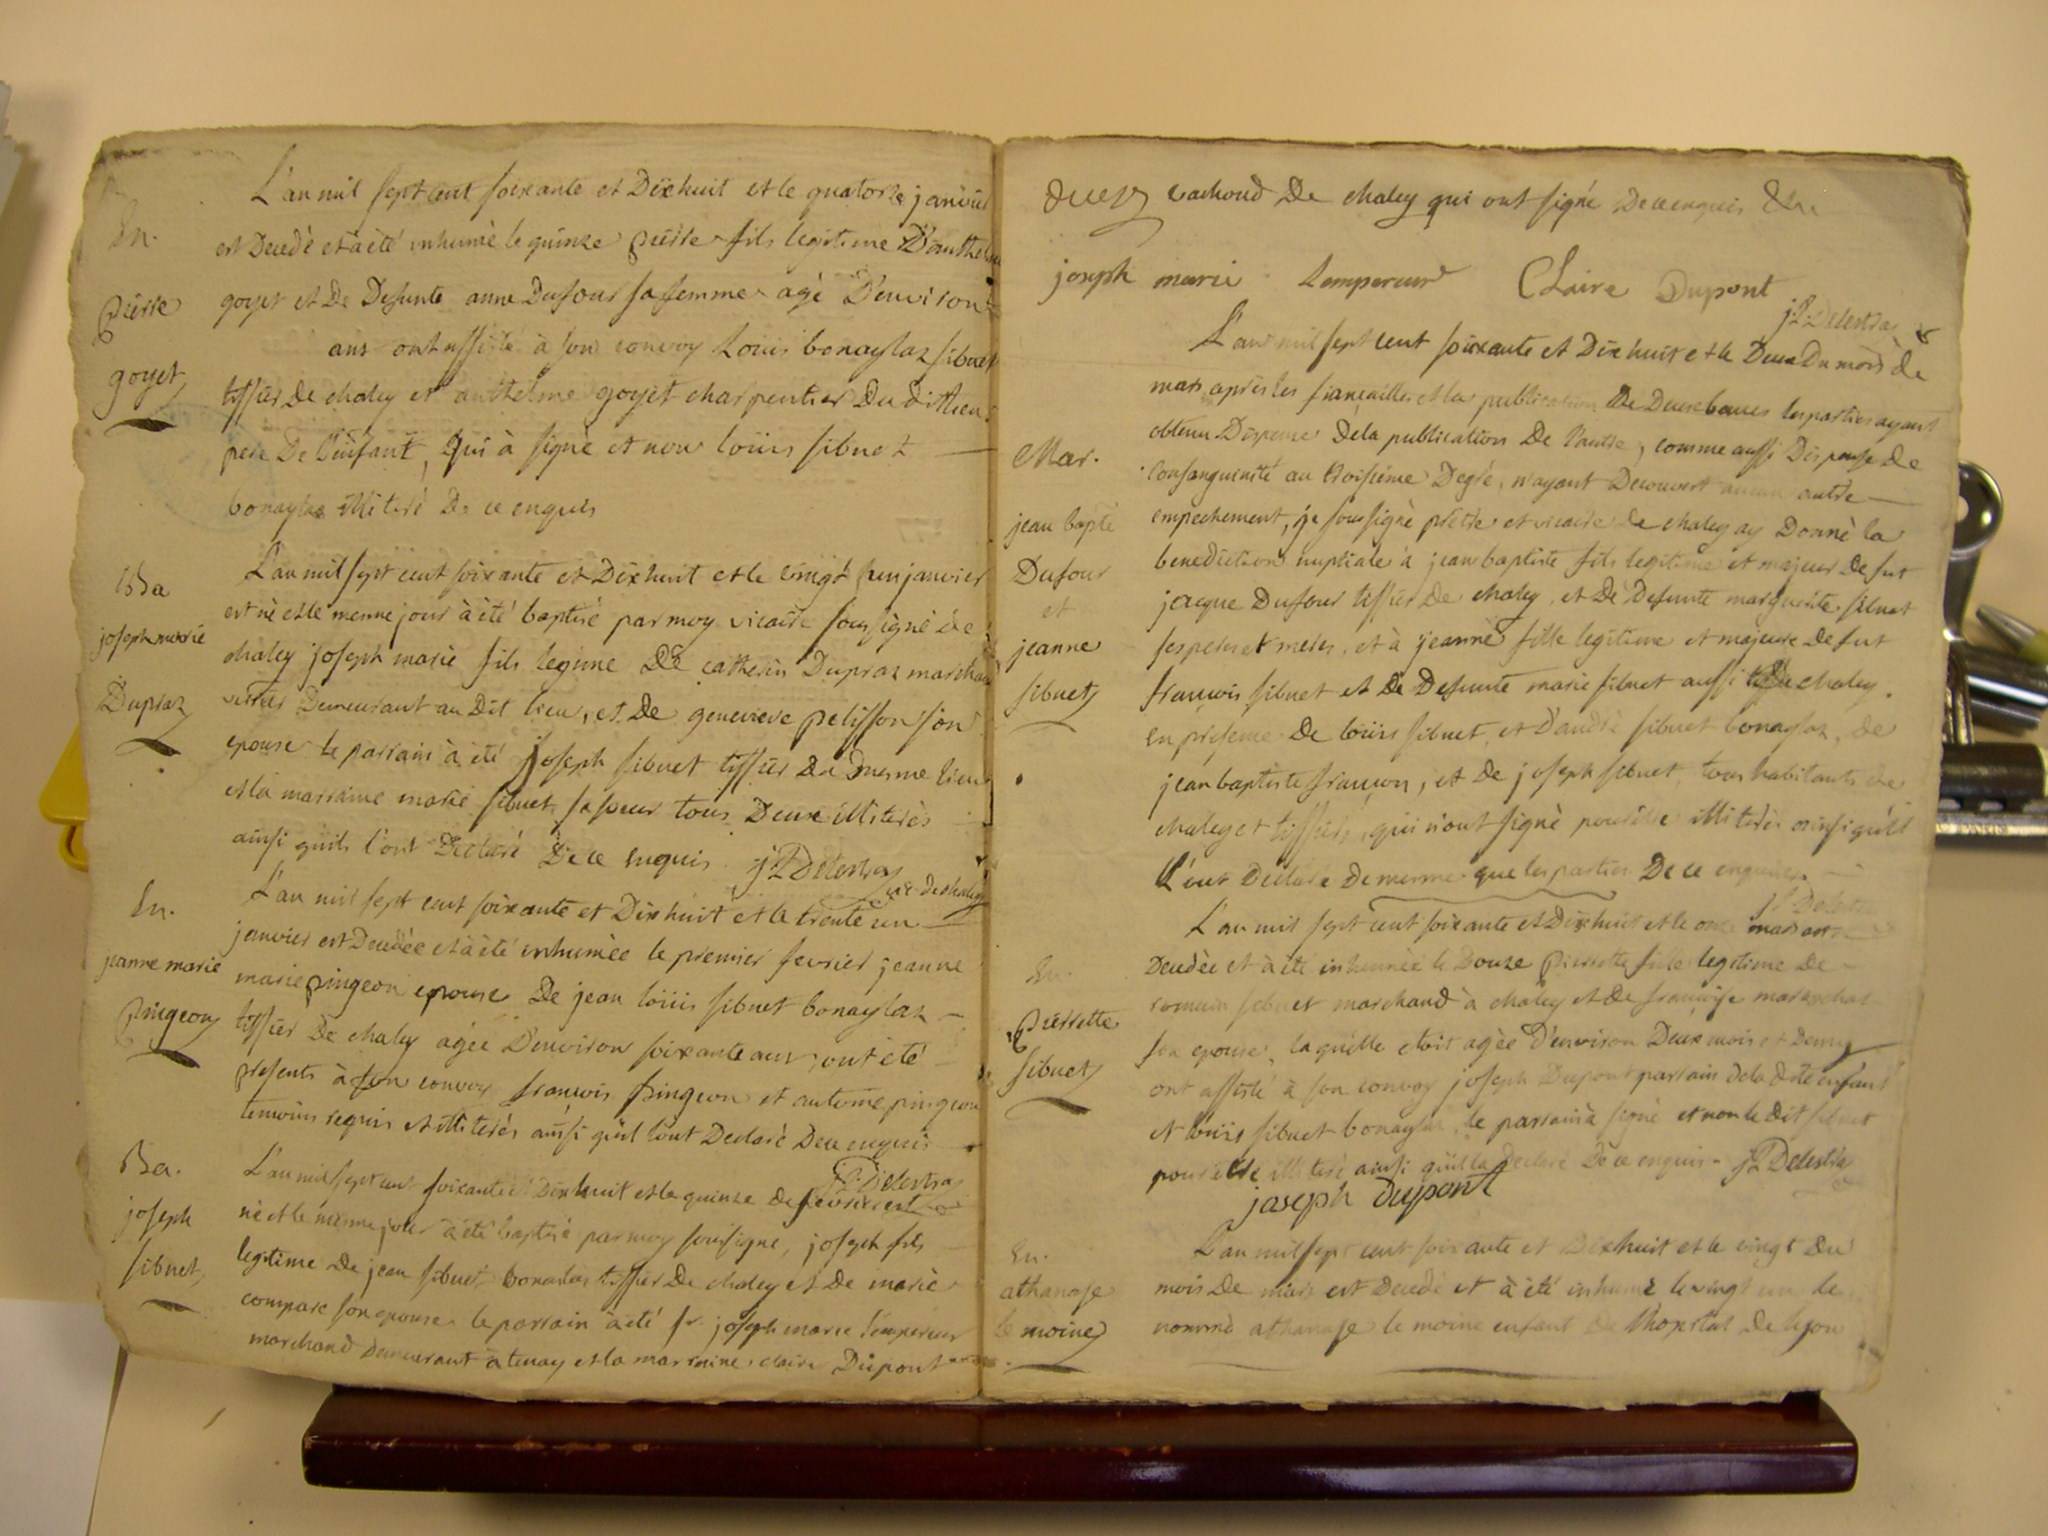 L'an mil sept cent soixante et Dixhuit et le quatorze janvier
En.
est Decedé et à été inhumé le quinze pierre fils legitime D'anthelme
pierre
goyet et De Defunte anne Dufour sa femme agé D'environ
goyet
ans ont assisté à son convoy Louis bonaylaz sibuet
tissier De chaley et anthelme goyet charpentier Du dit lieu
pere De l'enfant, qui à signé et non loüis sibuet
bonaylaz illiteré De ce enquis
Ba
L'an mil sept cent soixante et Dixhuit et le vingt un janvier
est né et le meme jour à été baptisé par moy vicaire soussigné de
joseph marie
chaley joseph marie fils legime De catherin Dupraz marchand
Dupraz
Demeurant au Dit lieu, et De genevieve pelisson son
epouse le parrain à été joseph sibuet tissier Du mesme lieu
et la marraine marie sibuet sa soeur tous Deux illiterés
ainsi quils l'ont Declaré De ce enquis j P Delestraz
vic. de chaley
En.
L'an mil sept cent soixante et Dixhuit et le trente un
janvier est Decedée et à été inhumée le premier fevrier jeanne
jeanne marie
marie pingeon epouse De jean loüis sibuet bonaylaz
pingeon
tissier De chaley agée D'environ soixante ans, ont été
presents à son convoy françois pingeon et antoine pingeon
temoins requis et illiterés ainsi quil l'ont Declaré De ce enquis
Ba.
j P Delestraz
L'an mil sept cent soixante et Dixhuit et le quinze de fevrier est
joseph
né et le meme jour à été baptisé par moy soussigné, joseph fils
sibuet
legitime De jean sibuet bonaylaz tissier De chaley et De marie
compare son epouse le parrain à été sr. joseph marie Lempereur
marchand Demeurant à tenay et la marraine claire Dupont
vachoud De chaley qui ont signé De ce enquis
joseph marie Lempereur Claire Dupont
j P Delestraz
L'an mil sept cent soixante et Dixhuit et le Deux Du mois de
mars après les fiançailles et la publication De Deux bancs les parties ayant
obtenu Dispense De la publication De l'autre, comme aussi Dispense de
Mar.
consanguinité au troisieme Degré, n'ayant Decouvert aucun autre
jean bapte
empechement, je soussigné prêtre et vicaire de chaley ay Donné la
Dufour
benediction nuptiale à jean baptiste fils legitime et majeur De fut
et
jacque Dufour tissier De chaley, et De Defunte marguerite sibuet
jeanne
ses peres et meres, et à jeanne fille legitime et majeure De fut
sibuet
françois sibuet et De Defunte marie sibuet aussi De chaley.
En presence De loüis sibuet, et D'andré sibuet bonaylaz, de
jean baptiste françon, et de joseph sibuet tous habitants de
chaley et tissiers, qui n'ont signé pour être illiterés ainsi quils
L'ont Declaré De mesme que les parties De ce enquises
j P Delestraz
L'an mil sept cent soixante et Dixhuit et le onze mars est
En.
Decedée et à été inhumée le Douze pierrette fille legitime De
romain sibuet marchand à chaley et de françoise
pierrette
son epouse, laquelle etoit agée D'environ Deux mois et Demy
sibuet
ont assisté à son convoy joseph Dupont parrain De la dite enfant
et loüis sibuet bonaylaz, le parrain à signé et non le Dit sibuet
pour être illiteré ainsi quil la Declaré De ce enquis - j P Delestraz
joseph dupont
En.
L'an mil sept cent soixante et Dixhuit et le vingt Du
athanase
mois De mars est Decedé et à été inhumé le vingt un le
le moine
nommé athanase le moine enfant De l'hopital De lyon